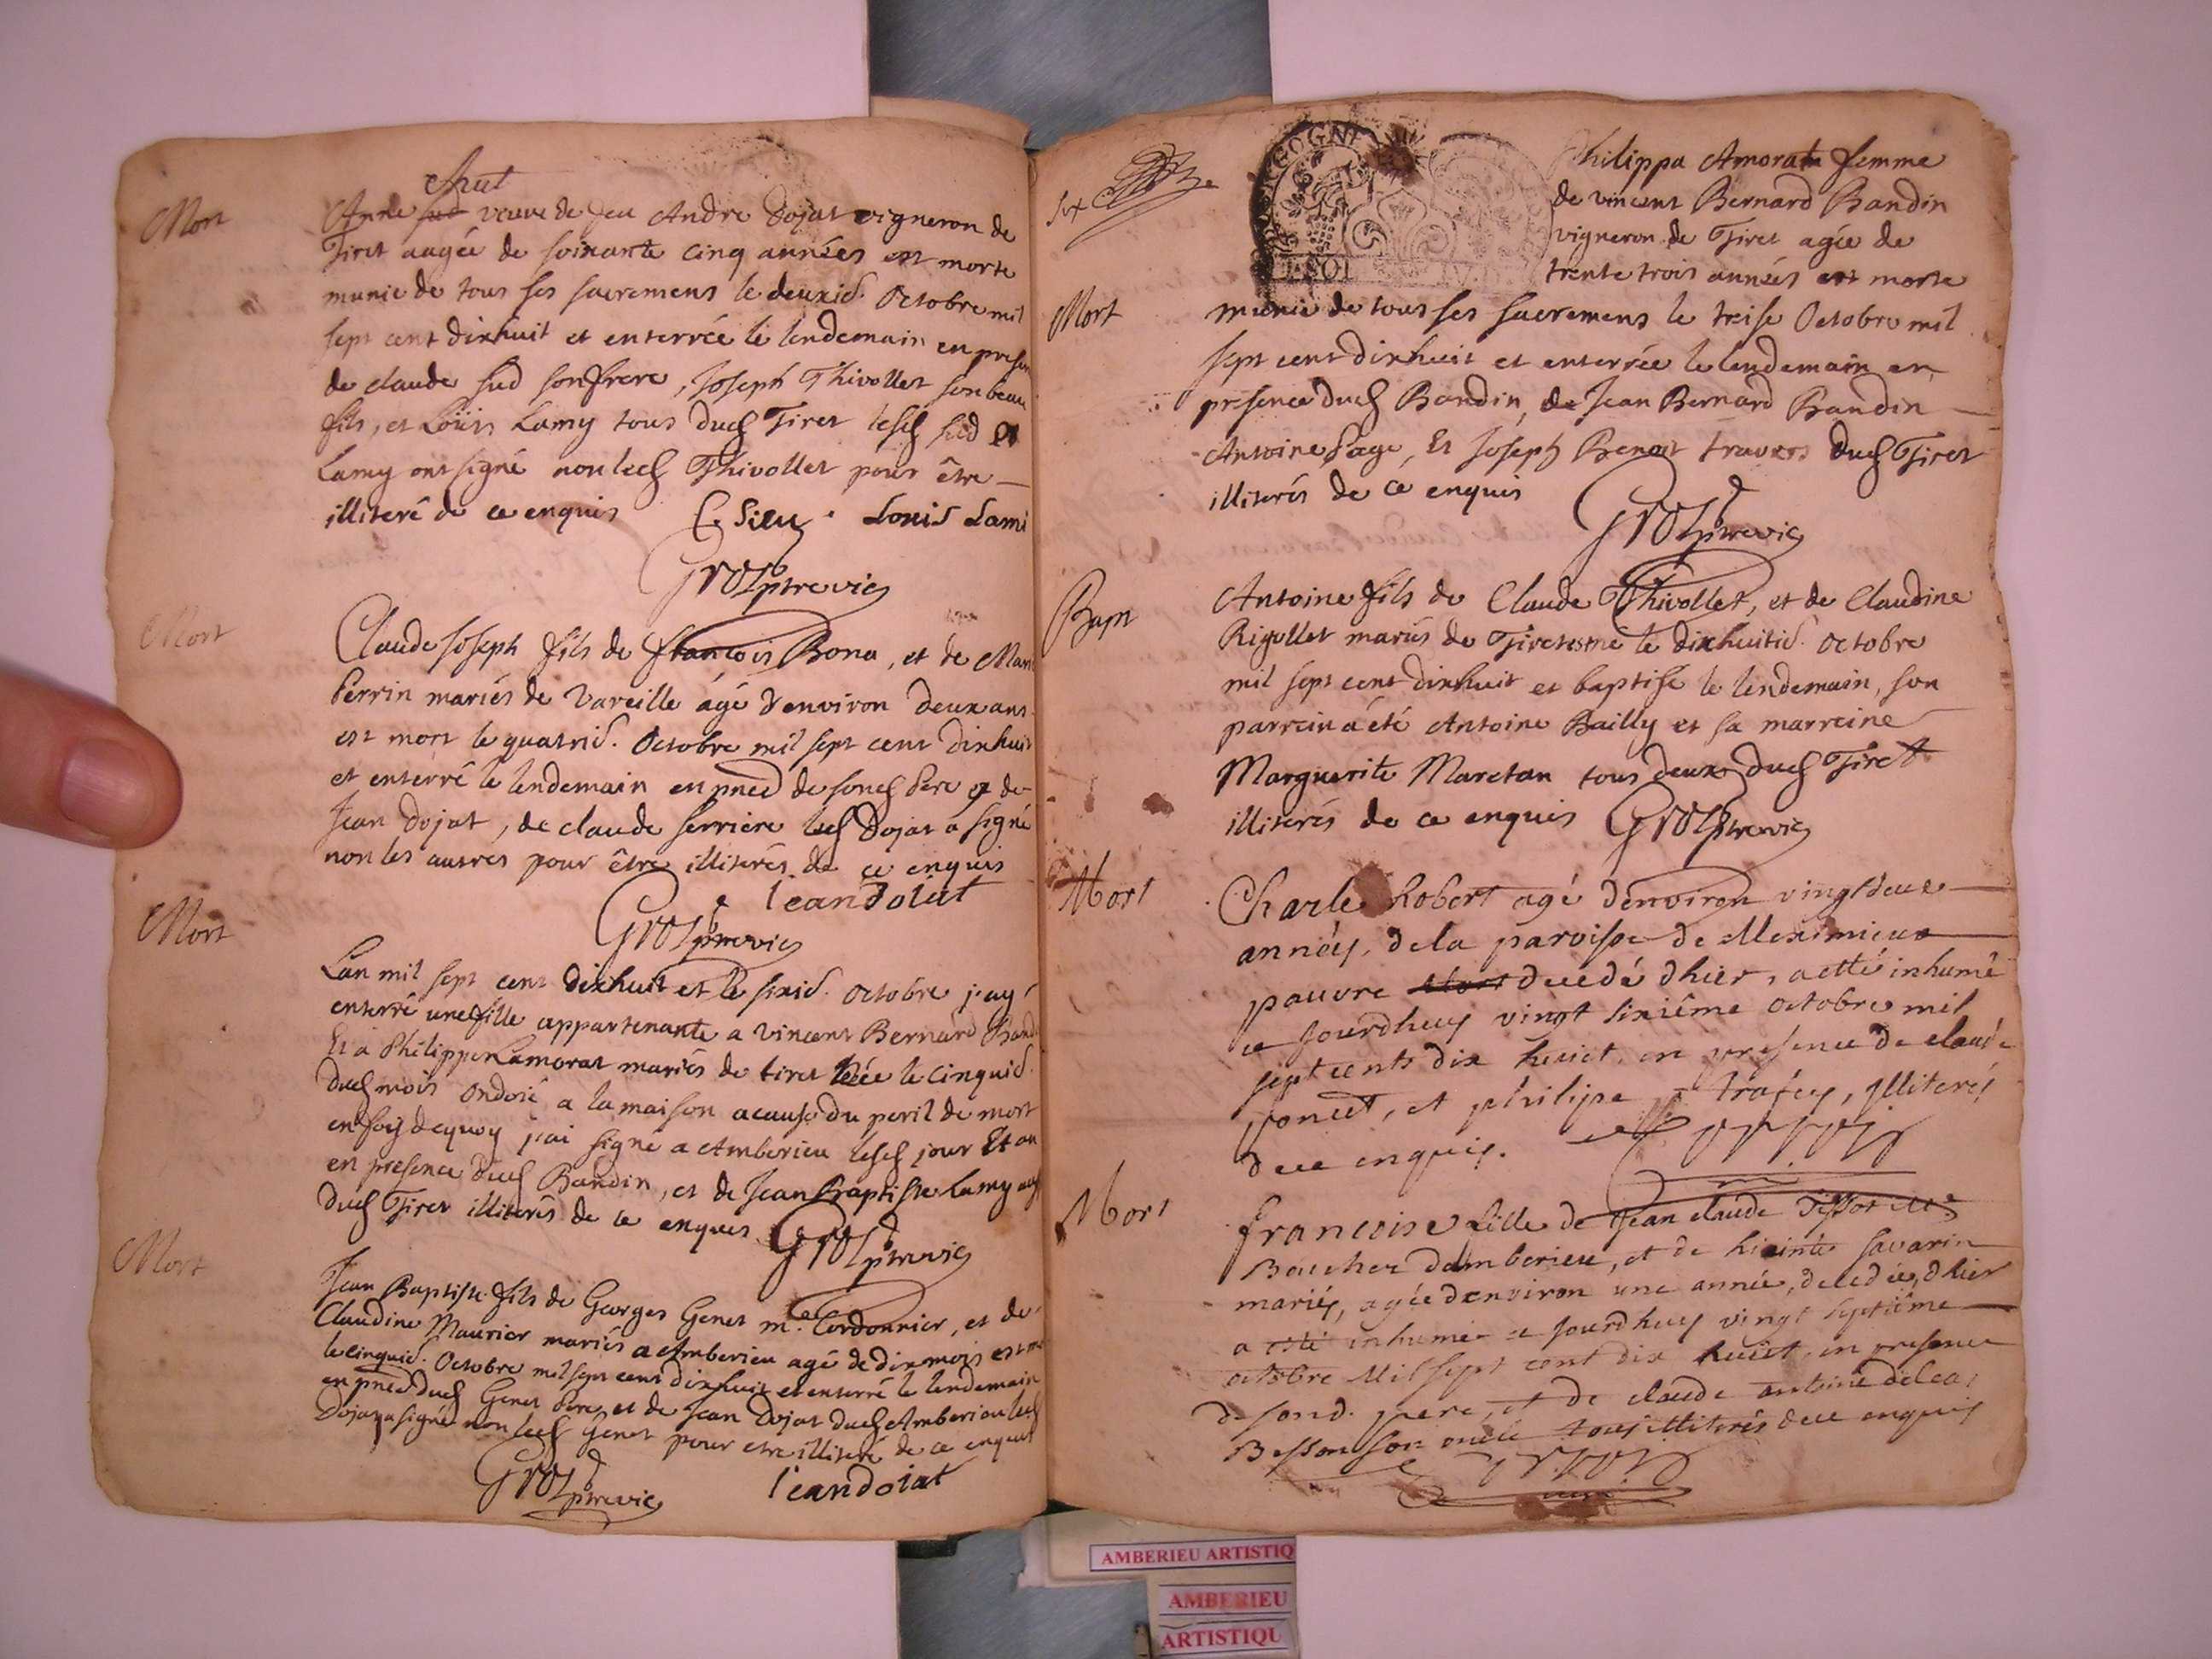 Mort
Anne veuve de feu Andre Dojat vigneron de
Tiret aagée de soixante cinq années est morte
munie de tous ses sacremens le deuxié. Octobre mil
sept cent dixhuit et enterrée le lendemain en presen
de claude sud son frere, Joseph Thivollet son beau
fils, et Loüis Lamy tous dud Tiret lesd sud et
Lamy ont signé non led Thivollet pour être
illiteré de ce enquis Louis Lami
Gros ptre vic
Mort
Claude Joseph fils de francois Bona, et de Mari
Perrin mariés de Vareille âgé d'environ deux ans
est mort le quatrié. Octobre mil sept cent dixhuit
et enterré le lendemain en pnce de sond Pere et de
Jean Dojat, de claude serriere led Dojat a signé
non les autres pour être illiterés de ce enquis
Jean Dolat
Gros ptre vic
Mort
Lan mil sept cent dixhuit et le sixié. octobre j'ay
enterré une fille appartenante a vincent Bernard Band
Et a Philippe Lamorat mariés de tiret née le cinquié.
dud mois ondoié a la maison a cause du peril de mort
en foy dequoy j'ai signé a Amberieu lesd jour Et an
en presence dud Bandin, et de Jean Baptiste Lamy
dud Tiret illiterés de ce enquis Gros ptre vic
Mort
Jean Baptiste fils de Georges Genet m.e Cordonnier, et de
Claudine Maurier mariés a Amberieu agé de dix mois est
le cinquié. Octobre mil sept cent dixhuit et enterré le lendemain
en pnce dud Genet Pere, et de Jean Dojat dud Amberieu led
Dojat a signé non led Genet pour etre illiteré de ce enquis
Gros ptre vic Jean doiat
Philippa Amorata femme
de vincent Bernard Bandin
vigneron de Tiret agée de
trente trois années est morte
Mort
munie de tous ses sacremens le treise Octobre mil
sept cent dixhuit et enterrée le lendemain en
presence dud Bandin, de Jean Bernard Bandin
Antoine Page, Et Joseph Benoit travers dud Tiret
illiterés de ce enquis
Gros ptre vic
Bapt
Antoine fils de Claude Thivollet, et de Claudine
Rigollet mariés de Tiret est né le dixhuitié. Octobre
mil sept cent dixhuit et baptisé le lendemain, son
parrein a été Antoine Bailly et sa marreine
Marguerite Maretan tous deux dud Tiret
illiterés de ce enquis Gros ptre vic
Mort
Charle Robert agé d'environ vingt deux
années, de la paroisse de Meximieux
pauvre decedé d'hier, a etté inhumé
ce jourdhuy vingt sixième octobre mil
sept cents dix huict, en presence de claude
poncet, et philipe trafey, jlliterés
de ce enquis.
Mort
francoise fille de Jean claude Tissot m.e
Boucher damberieu, et de hiainte savarin
mariés, agée d'environ une année, decedée, d'hier
a esté inhumée ce jourdhuy vingt septième
octobre Mil sept cent dix huict, en presence
de sond. pere, et de claude antoine
Besson son oncle tous illiterés de ce enquis
AMBERIEU ARTISTIQ
AMBERIEU
ARTISTIQU